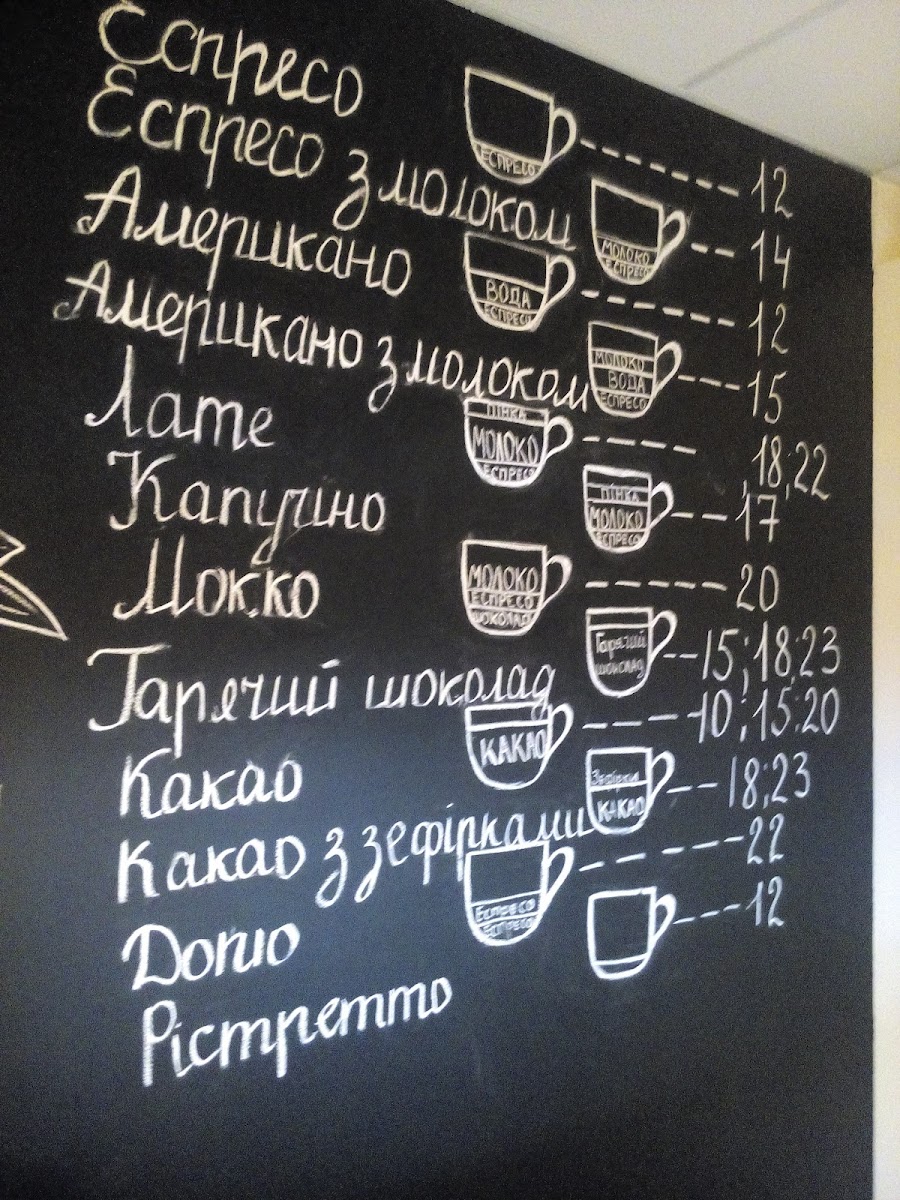 Еспресо ЕСПРЕСО 12
Еспресо з молоком МОЛОКО ЕСПРЕСО 14
Американо ВОДА ЕСПРЕСО 12
Американо з молоком МОЛОКО ВОДА ЕСПРЕСО 15
Лате ПІНКА МОЛОКО ЕСПРЕСО 18;22
Капучіно ПІНКА МОЛОКО ЕСПРЕСО 17
Мокко МОЛОКО ЕСПРЕСО ШОКОЛАД 20
Гарячий шоколад Гарячий шоколад 15;18;23
Какао КАКАО 10;15;20
Какао з зефірками Зефірки КАКАО 18;23
Допіо Еспресо Еспресо 22
Рістретто 12